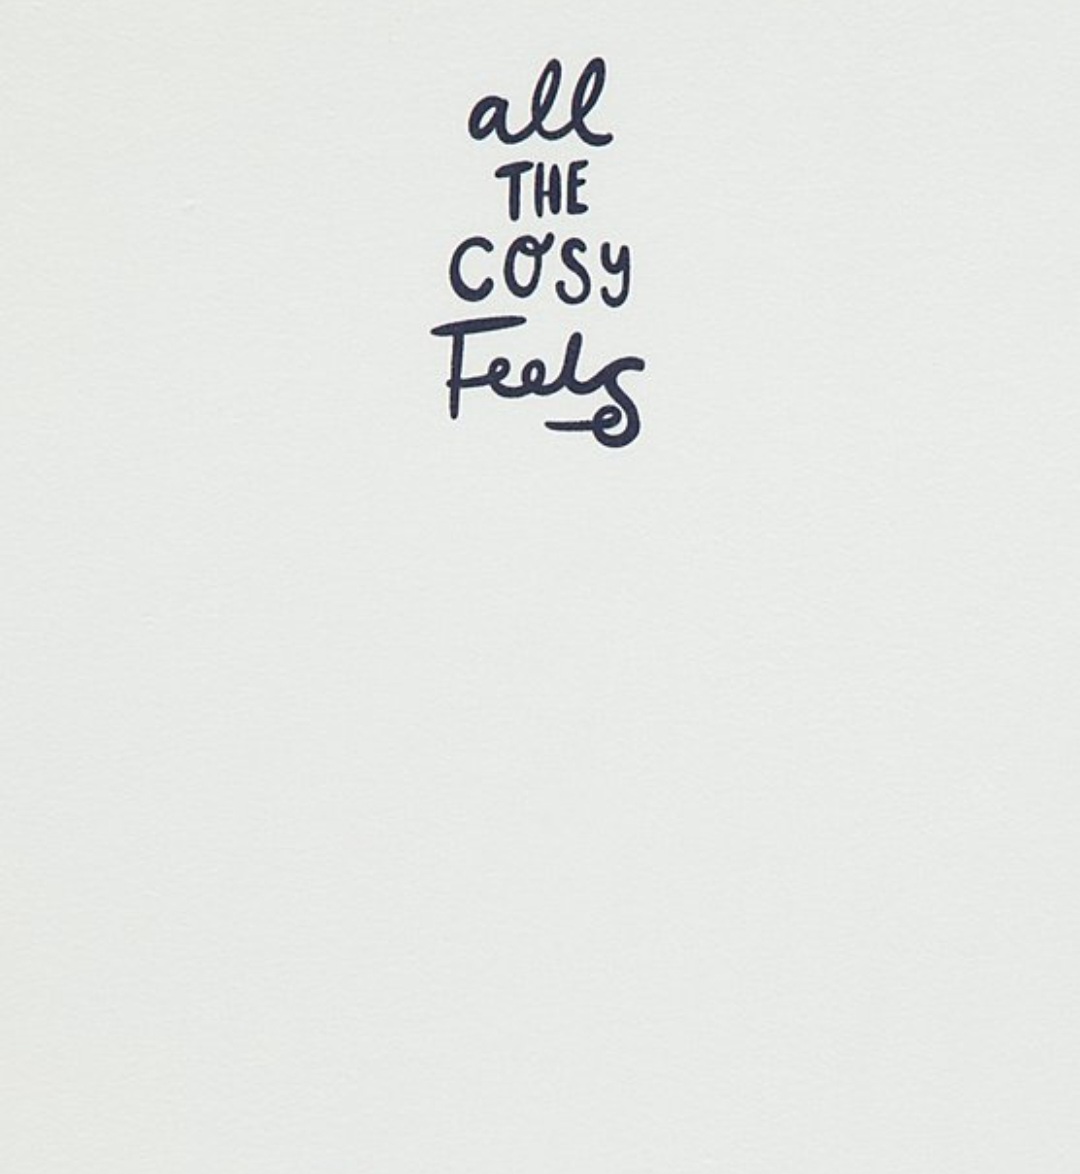 all
THE
COSY
Feels